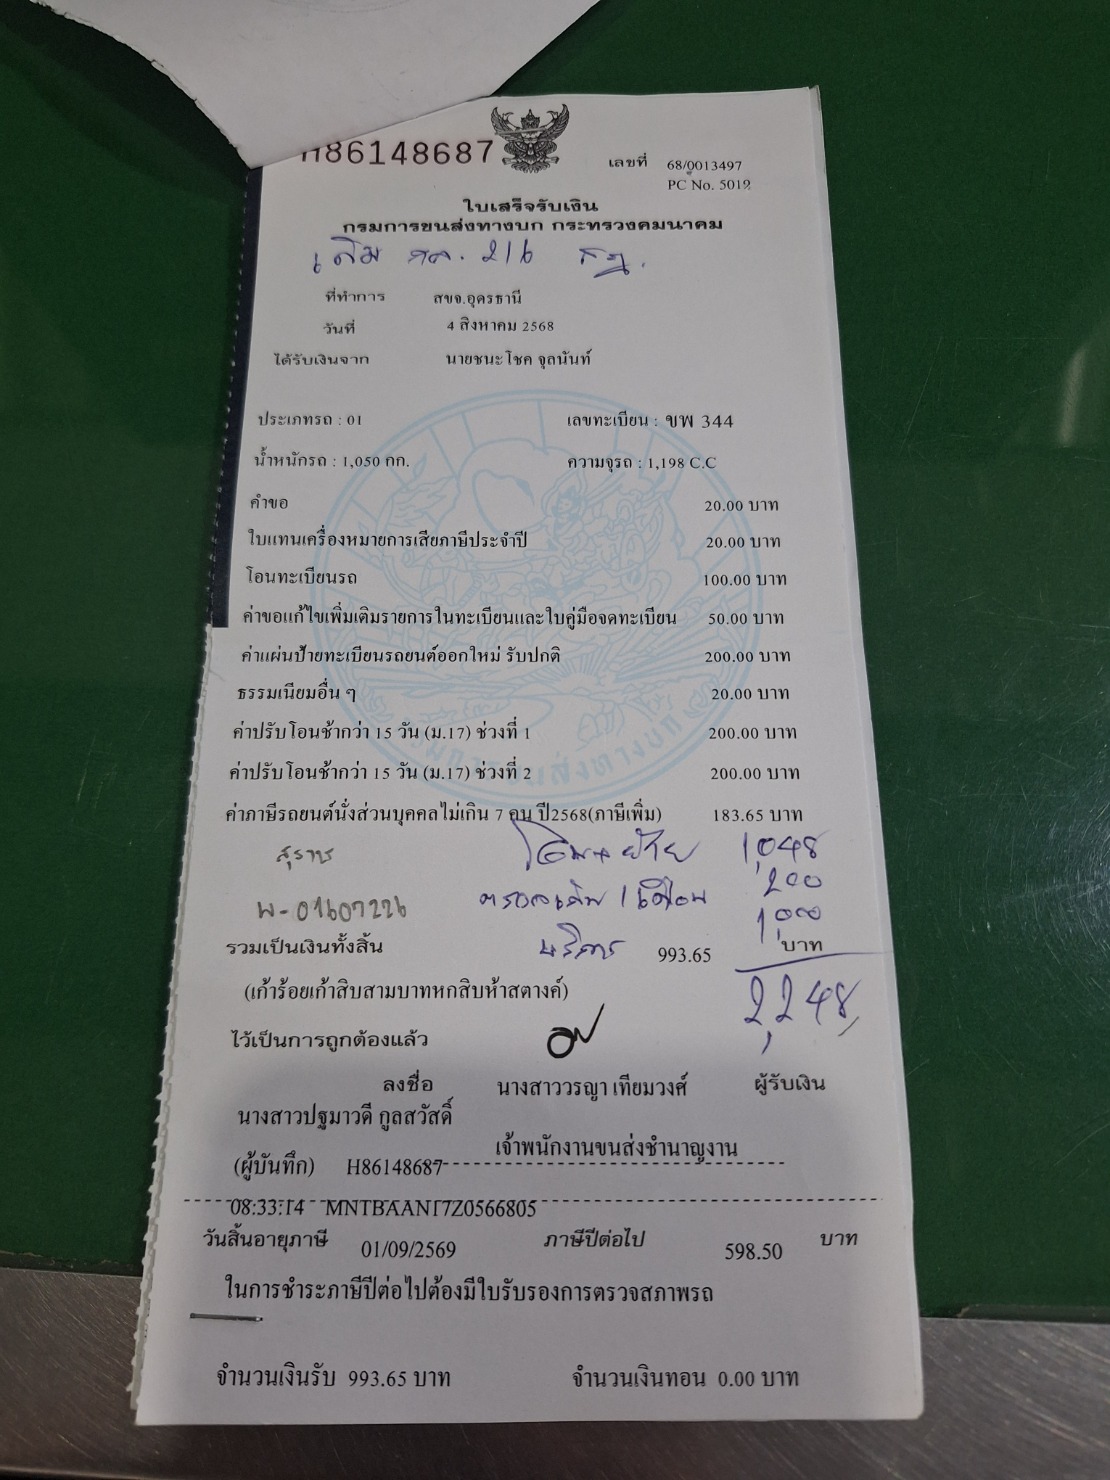 H86148687
เลขที่ 68/0013497
PC No. 5012
ใบเสร็จรับเงิน
กรมการขนส่งทางบก กระทรวงคมนาคม
เดิม 216
ที่ทำการ สขจ.อุดรธานี
วันที่ 4 สิงหาคม 2568
ได้รับเงินจาก นายชนะโชค จุลนันท์
ประเภทรถ : 01 เลขทะเบียน : ขพ 344
น้ำหนักรถ : 1,050 กก. ความจุรถ : 1,198 C.C
คำขอ 20.00 บาท
ใบแทนเครื่องหมายการเสียภาษีประจำปี 20.00 บาท
โอนทะเบียนรถ 100.00 บาท
ค่าขอแก้ไขเพิ่มเติมรายการในทะเบียนและใบคู่มือจดทะเบียน 50.00 บาท
ค่าแผ่นป้ายทะเบียนรถยนต์ออกใหม่ รับปกติ 200.00 บาท
ธรรมเนียมอื่น ๆ 20.00 บาท
ค่าปรับโอนช้ากว่า 15 วัน (ม.17) ช่วงที่ 1 200.00 บาท
ค่าปรับโอนช้ากว่า 15 วัน (ม.17) ช่วงที่ 2 200.00 บาท
ค่าภาษีรถยนต์นั่งส่วนบุคคลไม่เกิน 7 คน ปี2568(ภาษีเพิ่ม) 183.65 บาท
โอน+ย้าย 1,048
200
พ-01607226 1,000
รวมเป็นเงินทั้งสิ้น บริการ 993.65 บาท
(เก้าร้อยเก้าสิบสามบาทหกสิบห้าสตางค์) 2,248
ไว้เป็นการถูกต้องแล้ว
ลงชื่อ นางสาววรญา เทียมวงศ์ ผู้รับเงิน
นางสาวปฐมาวดี กูลสวัสดิ์
เจ้าพนักงานขนส่งชำนาญงาน
(ผู้บันทึก) H86148687
08:33:14 MNTBAAN17Z0566805
วันสิ้นอายุภาษี 01/09/2569 ภาษีปีต่อไป 598.50 บาท
ในการชำระภาษีปีต่อไปต้องมีใบรับรองการตรวจสภาพรถ
จำนวนเงินรับ 993.65 บาท จำนวนเงินทอน 0.00 บาท